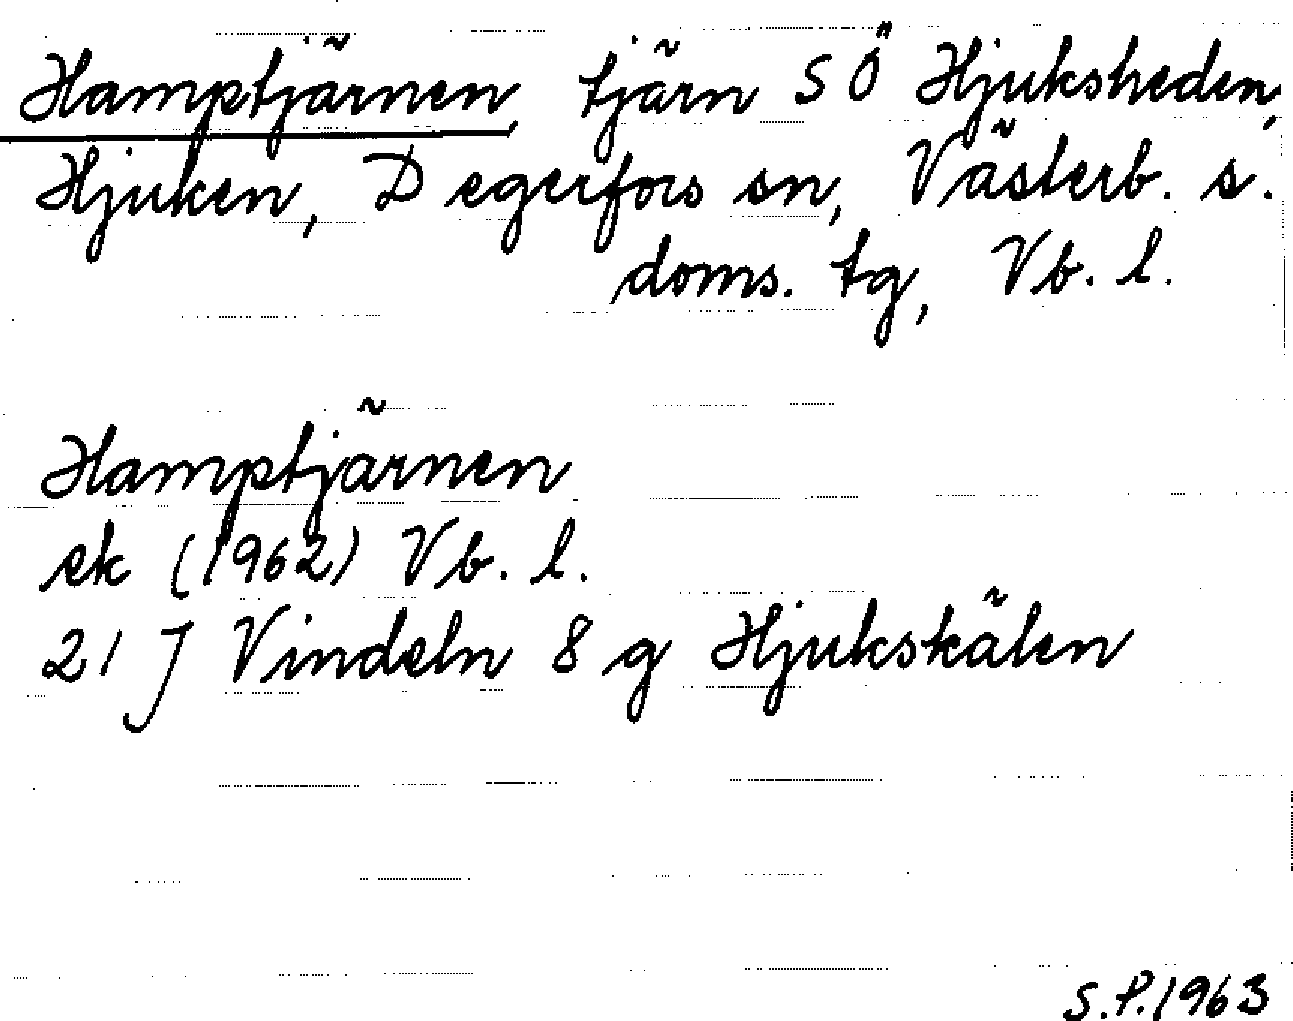 Hamptjärnen, tjärn SÖ Hjuksheden,
Hjuken, Degerfors sn, Västerb. s.
doms. tg, Vb. l.
Hamptjärnen
ek (1962) Vb. l.
21 J Vindeln 8 g Hjukskälen
S.P. 1963